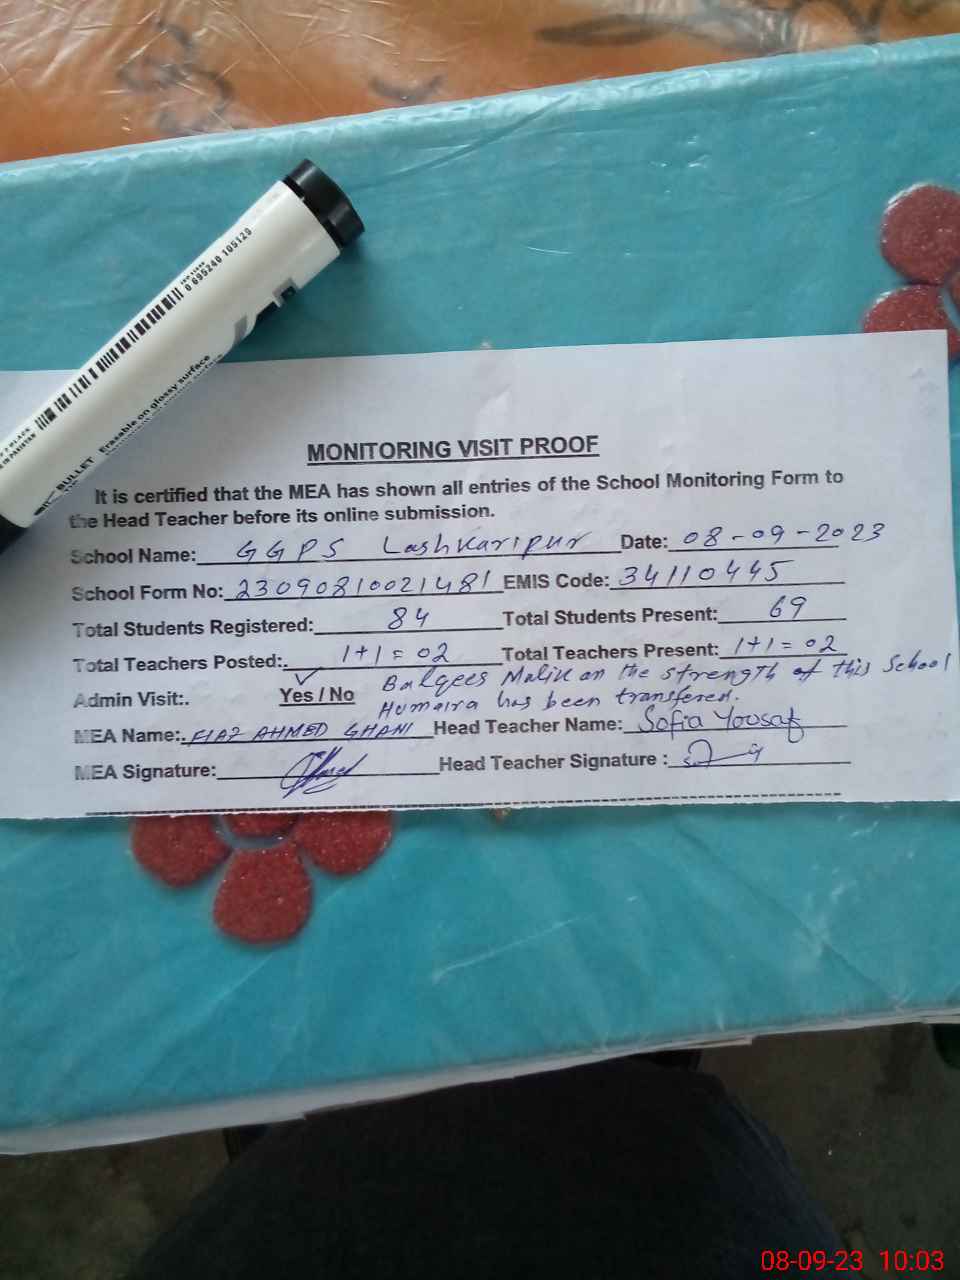 0 695240 105129
BULLET Erasable on glossy surface
MONITORING VISIT PROOF
It is certified that the MEA has shown all entries of the School Monitoring Form to
the Head Teacher before its online submission.
School Name: GGPS Lashkaripur Date: 08-09-2023
School Form No: 23090810021481 EMIS Code: 34110445
Total Students Registered: 84 Total Students Present: 69
Total Teachers Posted: 1+1=02 Total Teachers Present: 1+1=02
Admin Visit:. Yes / No Balqees Malik on the strength of this School
Humaira has been transfered.
MEA Name:. FIAZ AHMED GHANI Head Teacher Name: Sofia Yousaf
MEA Signature: Head Teacher Signature :
08-09-23 10:03